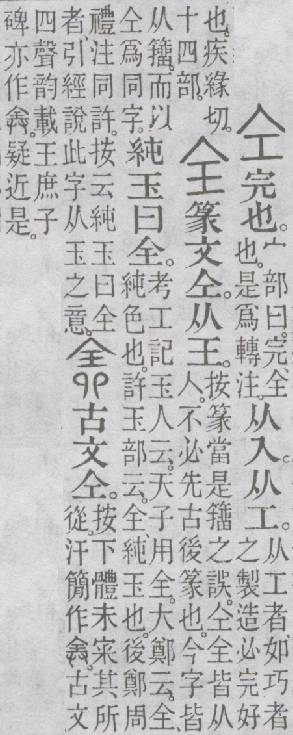 仝完也。
宀部曰。完全
也。是爲轉注。
从入。从工。
从工者。如巧者
之製造必完好
也。疾緣切。
十四部。
全篆文仝。从王。
按篆當是籒之誤。仝全皆从
人。不必先古後篆也。今字皆
从籒。而以
仝爲同字。
純玉曰全。
考工記玉人云。天子用全。大鄭云。全
純色也。許玉部云。全、純玉也。後鄭周
禮注同許。按云純玉曰全
者引經說此字从玉之意。
𠓴古文仝。
按下體未宷其所
從。汗簡作𠓴。古文
四聲韵載王庶子
碑亦作𠓴。疑近是。